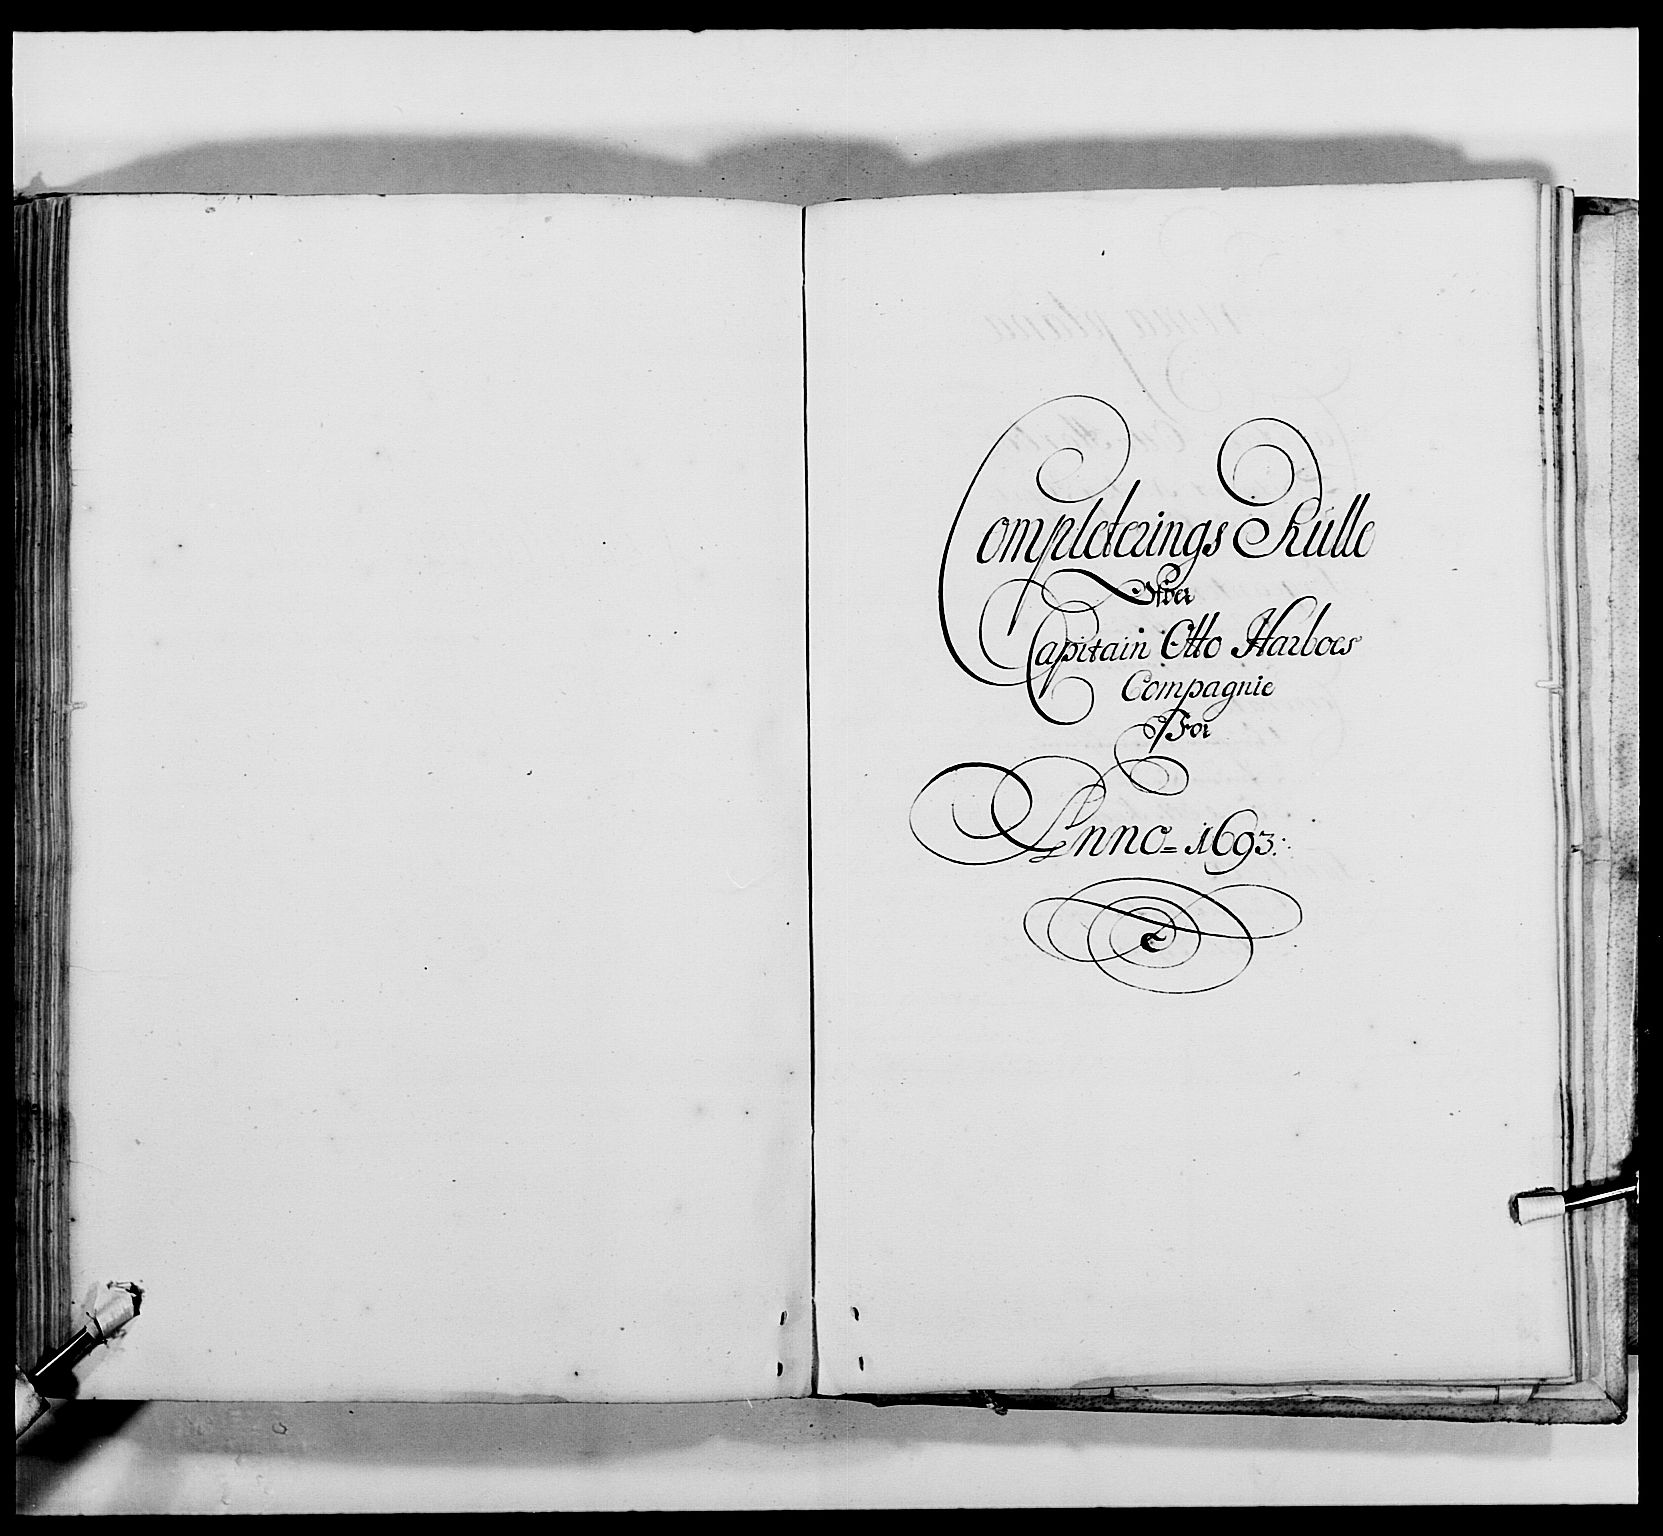 Completerings Rulle
Ofver
Capitain Otto Harboes
Compagnie
For
Anno = 1693: